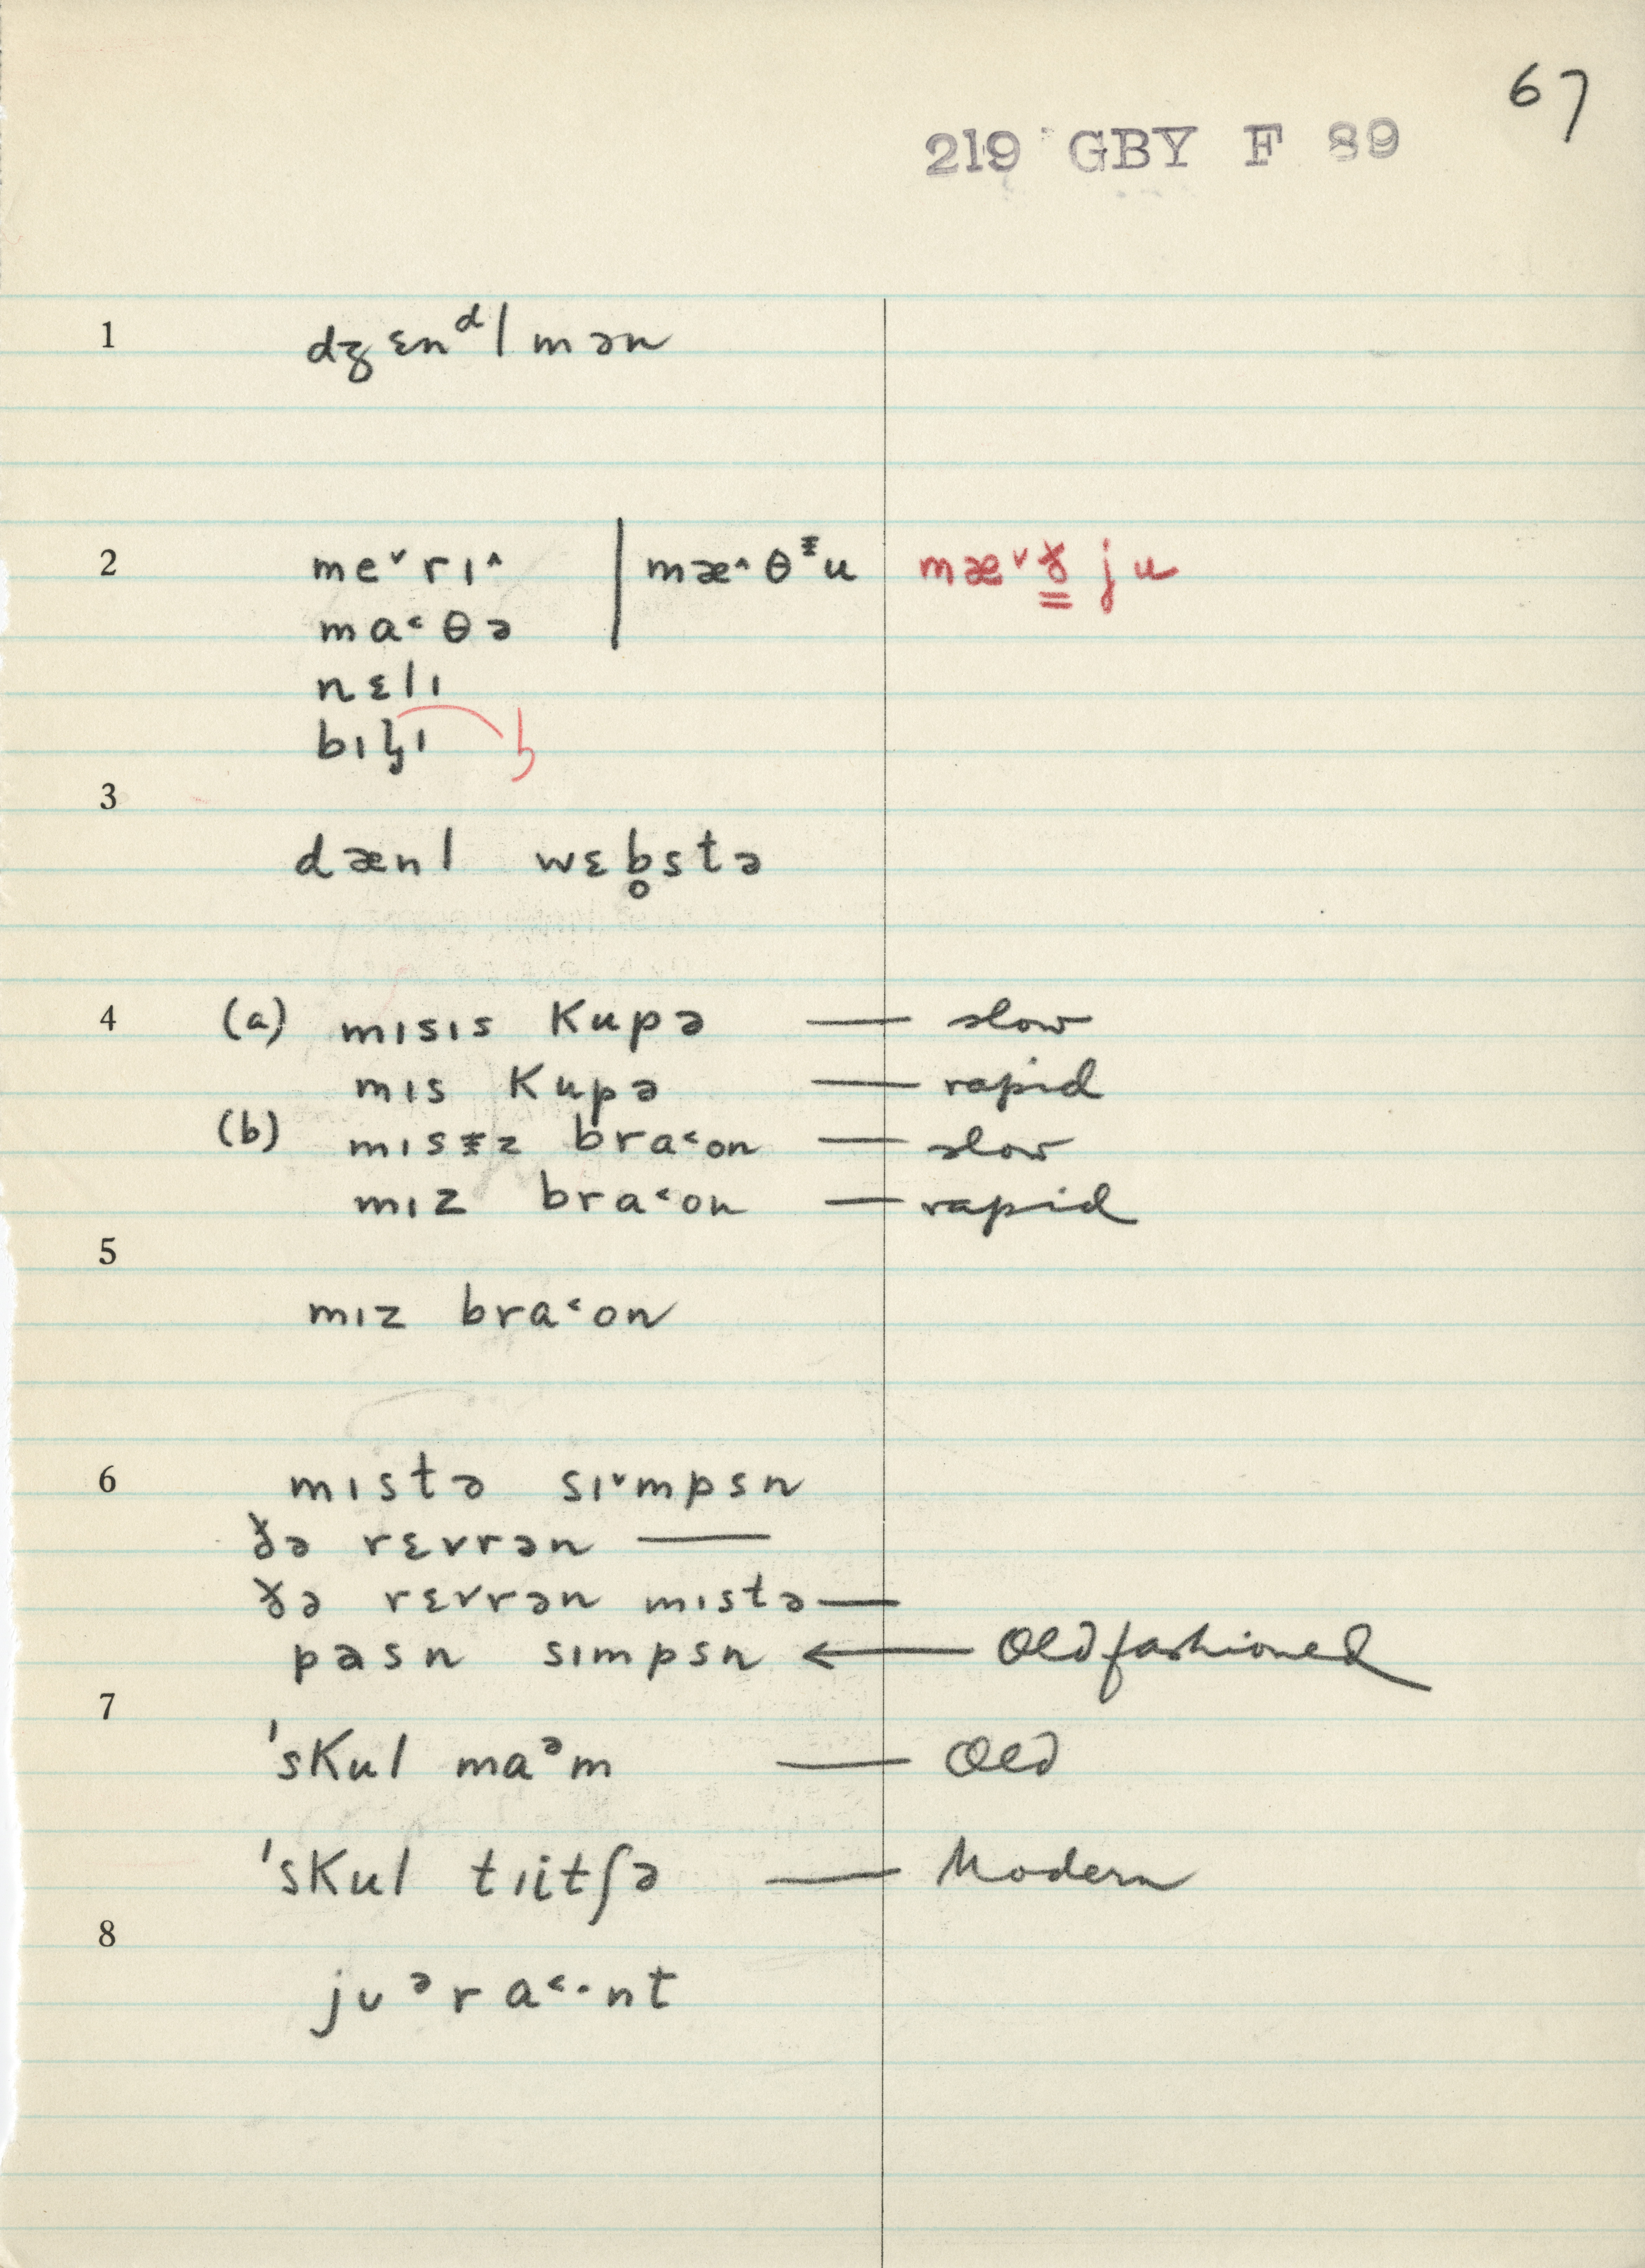 67
219 GBY F 89
1 dʒɛnᵈlmən
2 me˅rɪ^ | mæ^θᵻu mæ˅ð̳ju
ma˂θə
nɛlɪ
bɪɫɪ
3
dænl wɛb̥stə
4 (a) mɪsɪs kupə — slow
mɪs kupə — rapid
(b) mɪsᵻz bra˂on — slow
mɪz bra˂on — rapid
5
mɪz bra˂on
6 mɪstə sɪ˅mpsn
ðə rɛvrən —
ðə rɛvrən mɪstə —
pasn sɪmpsn ← Old fashioned
7
ˈskul maᵊm — Old
ˈskul tɪitʃə — Modern
8
jʊᵊra˂·nt